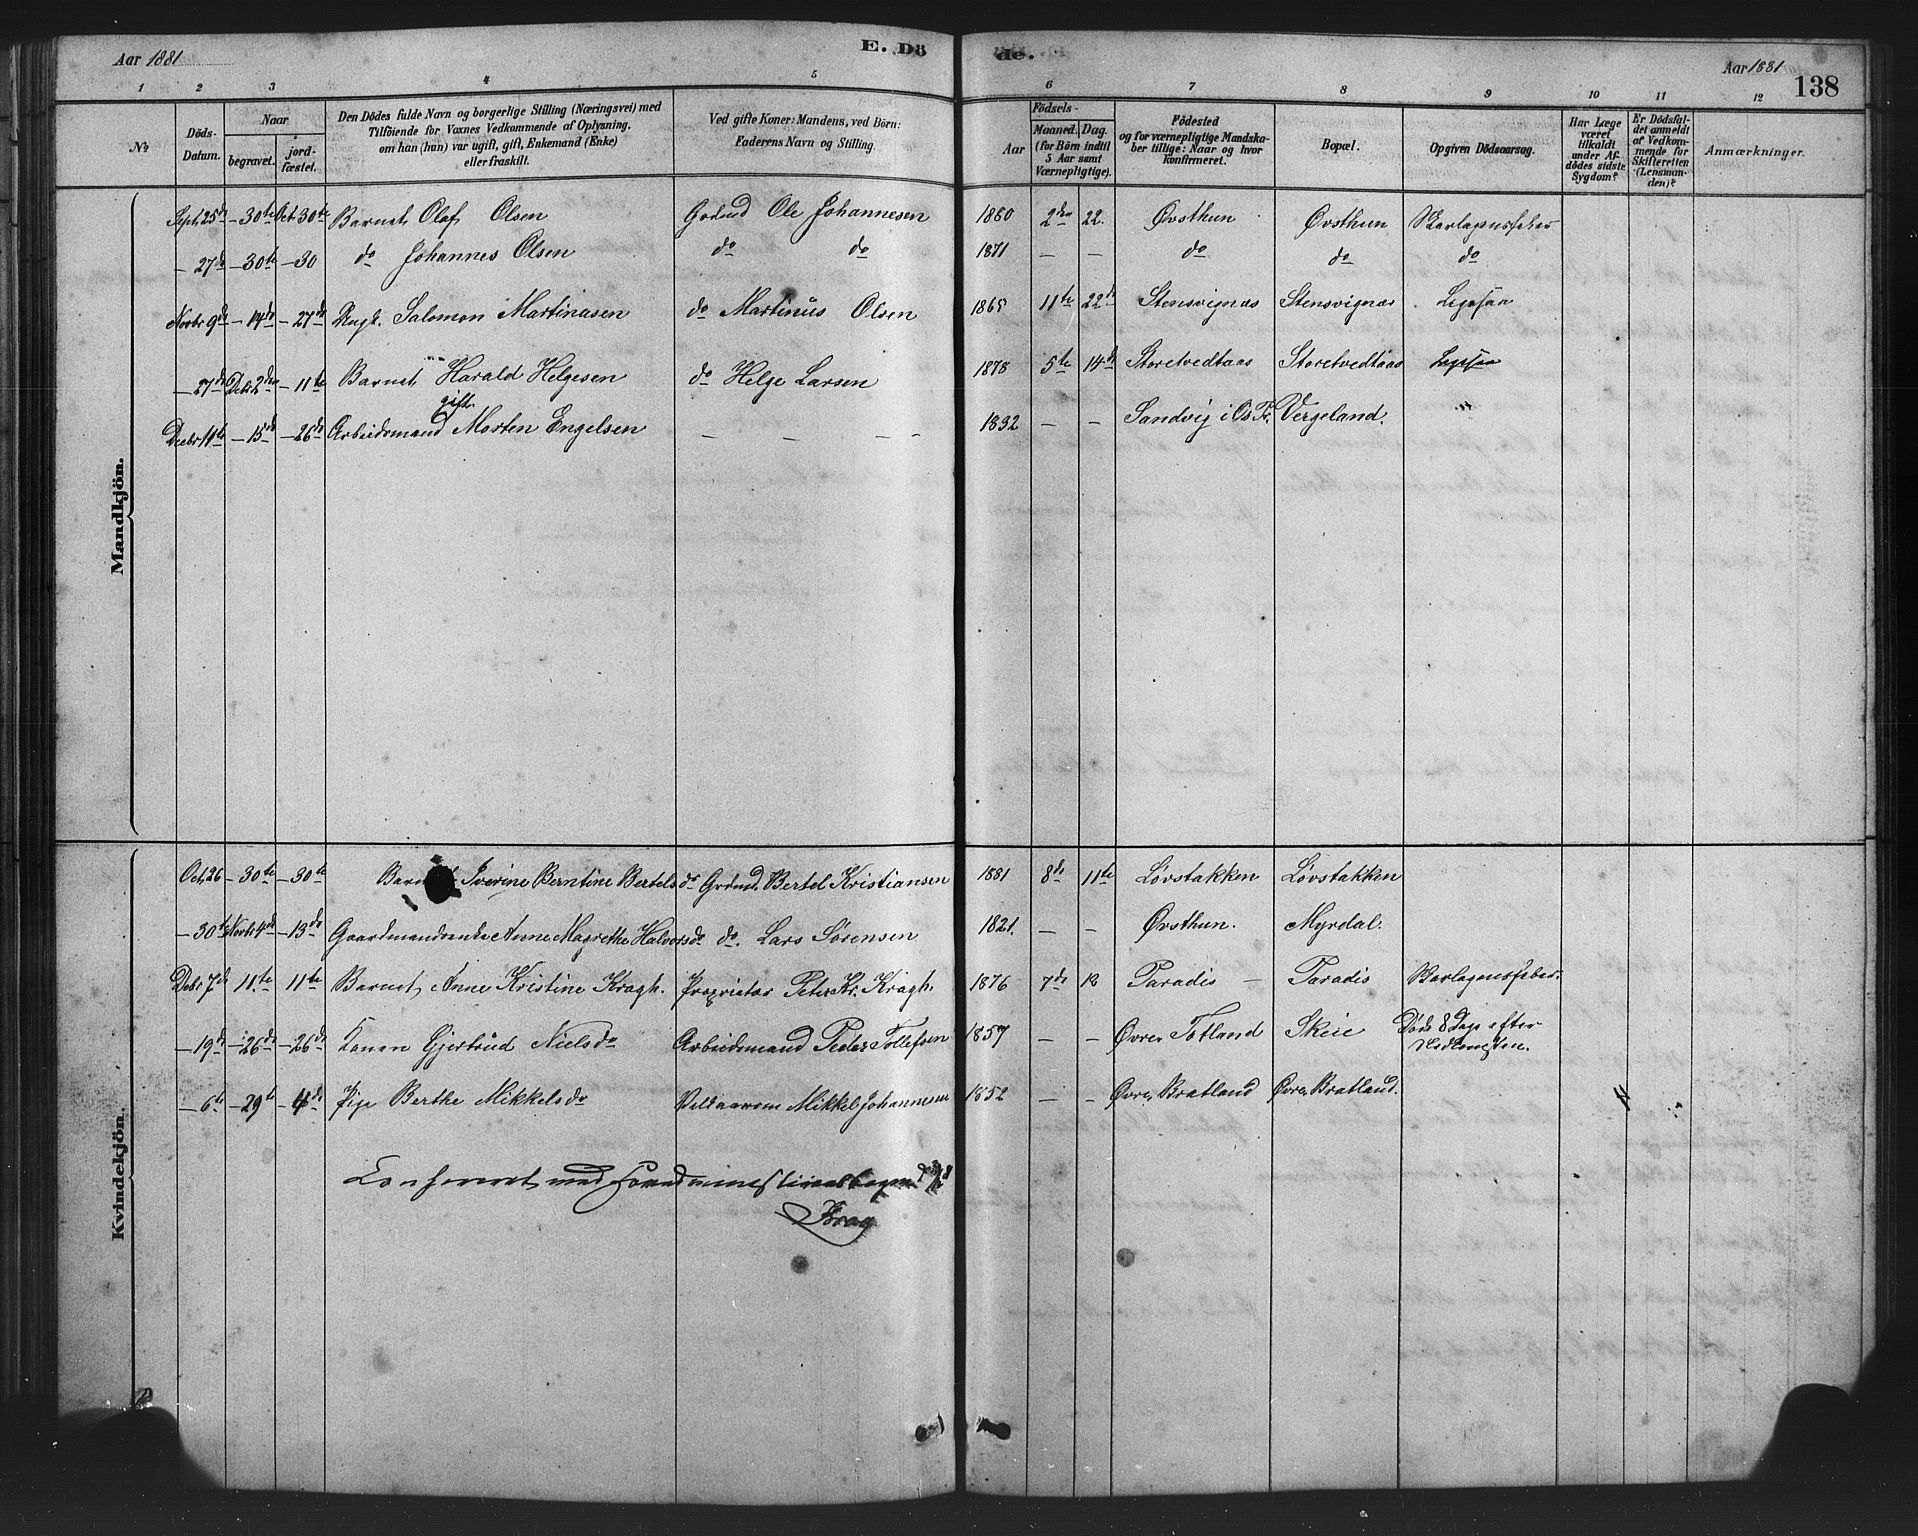 Aar 1881 E. Dö
de. Aar 1881 138
1 2 3 4 5 6 7 8 9 10 11 12
No
Döds-
Datum.
Naar
begravet.
jord-
fæstet.
Den Dödes fulde Navn og borgerlige Stilling (Næringsvei) med
Tilföiende for Voxnes Vedkommende af Oplysning,
om han (hun) var ugift, gift, Enkemand (Enke)
eller fraskilt.
Ved gifte Koner: Mandens, ved Börn:
Faderens Navn og Stilling.
Födsels-
Aar
Maaned. Dag.
(for Börn indtil
5 Aar samt
Værnepligtige).
Födested
og for værnepligtige Mandska-
ber tillige: Naar og hvor
konfirmeret.
Bopæl.
Opgiven Dödsaarsag.
Har Læge
været
tilkaldt
under Af-
dödes sidste
Sygdom?
Er Dödsfal-
det anmeldt
af Vedkom-
mende for
Skifteretten
(Lensman-
den)?
Anmærkninger.
Mandkjön.
Sept. 25de – 30te Oct 30te Barnet Olaf Olsen Gadmd Ole Johannesen 1880 2den 22. Øvsthun Øvsthun Skarlagensfeber
– 27de – 30te – 30 do Johannes Olsen do do 1871 – – do do do
Novbr 9de – 14de – 27de Salomon Martinusen do Martinus Olsen 1865 11te 22de Stensvignæs Stensvignæs
– 27de Debr 2den – 11te Barnet Harald Helgesen do Helge Larsen 1878 5te 14de Storetvedtaas Storetvedtaas
gift
Decbr 11te – 15de – 26de Arbeidsmand Morten Engelsen – – – – 1832 – – Sandvig i Os Pr. Vergeland. "
Kvindekjön.
Oct. 26 – 30te – 30te Iverine Berntine Bertelsdr Grdmd. Bertel Kristiansen 1881 8de 11te Løvstakken Løvstakken
– 30te Novbr 4de – 13de Gaardmandsenke Anne Magrethe Halvorsdr do. Lars Sørensen 1821. – – Øvsthun. Myrdal.
Debr 7de 11te 11te Barnet Anne Kristine Kragh. Proprietær Peter Kr. Kragh. 1876 7de 12 Paradis – Paradis Skarlagensfeber.
– 19de – 26de – 26de Konen Gjertrud Nielsdr Arbeidsmand Peder Tollefsen 1857 – – Øvre Totland Skeie Døde 8 Dage efter
Nedkomsten.
– 6te – 29te – Pige Berthe Mikkelsdr Mikkel Johannesen 1852 – – Øvre Bratland Øvre Bratland.
Konfereret med
Krag